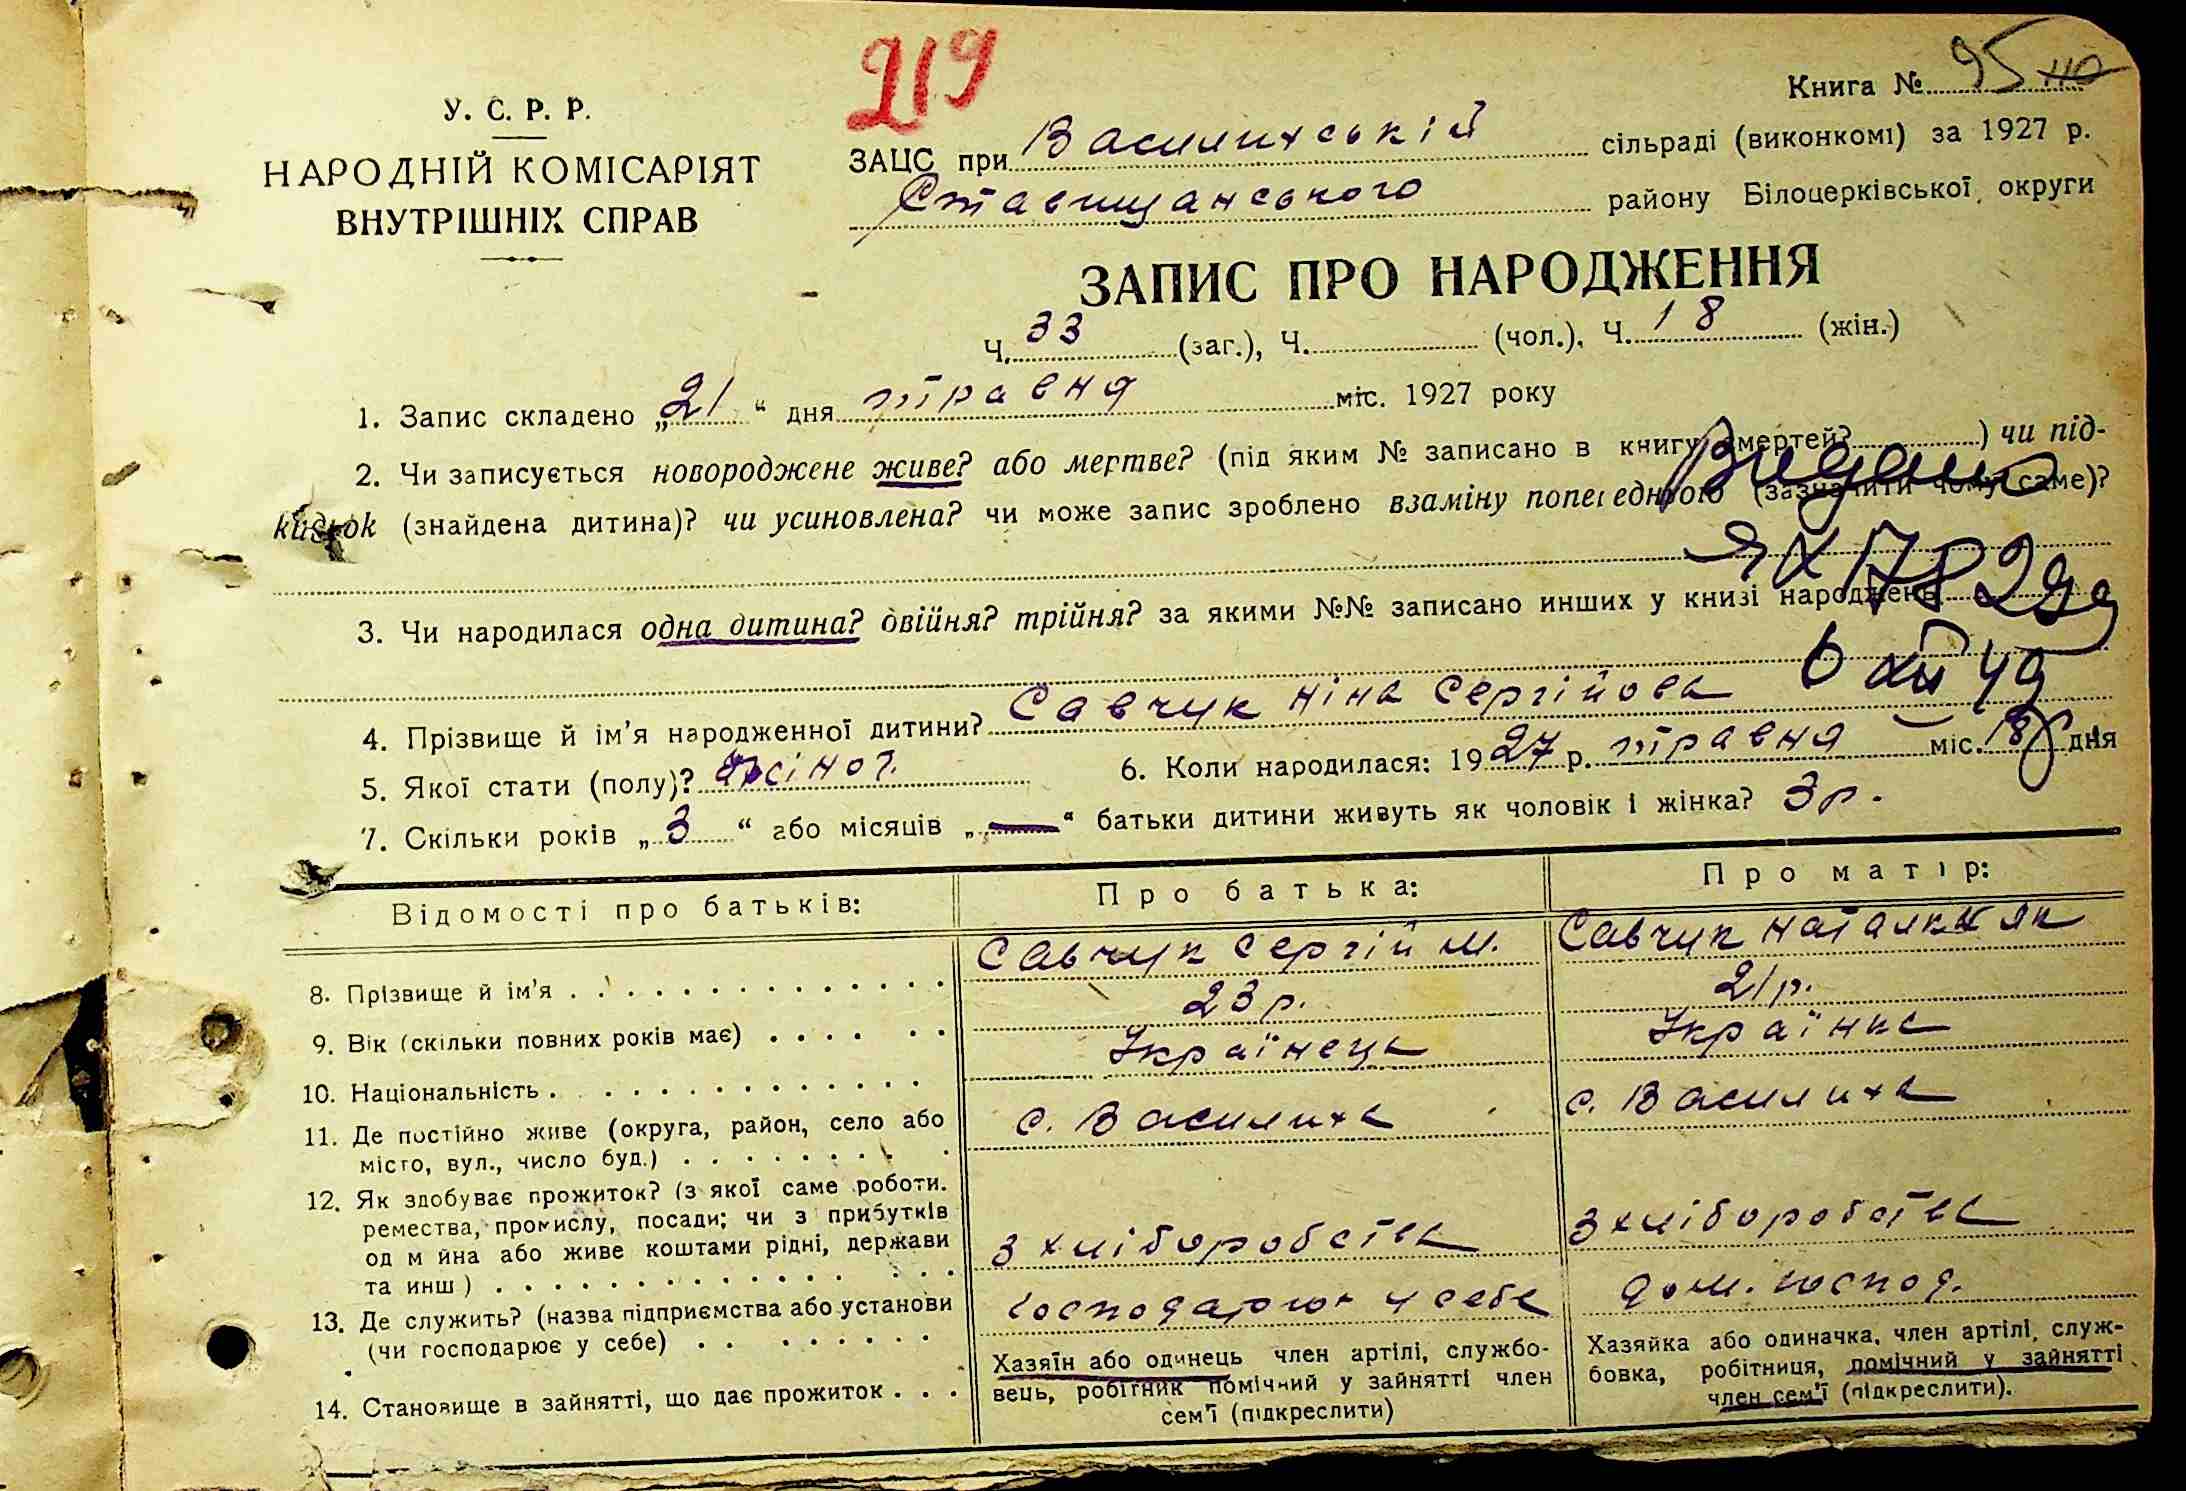 219
Книга № 95 110
У. С. Р. Р.
НАРОДНІЙ КОМІСАРІЯТ
ВНУТРІШНІХ СПРАВ
ЗАЦС при Василихській сільраді (виконкомі) за 1927 р.
Ставищанського району Білоцерківської округи
ЗАПИС ПРО НАРОДЖЕННЯ
Ч. 33 (заг.), Ч. (чол.), Ч. 18 (жін.)
1. Запис складено „21“ дня травня міс. 1927 року
2. Чи записується новороджене живе? або мертве? (під яким № записано в книгу смертей? ) чи під-
кидьок (знайдена дитина)? чи усиновлена? чи може запис зроблено взаміну попередньою (зазначити чому саме)?
Видано
ЯХ
3. Чи народилася одна дитина? двійня? трійня? за якими №№ записано инших у книзі народжень
6 XII 49
4. Прізвище й ім'я народженної дитини? Савчук Ніна Сергійова
5. Якої стати (полу)? жіноч. 6. Коли народилася: 1927 р. травня міс. 18 дня
7. Скільки років „3“ або місяців „—“ батьки дитини живуть як чоловік і жінка? 3 р.
Відомості про батьків: Про батька: Про матір:
8. Прізвище й ім'я Савчук Сергій М. Савчук Наталка Як
9. Вік (скільки повних років має) 23 р. 21 р.
10. Національність Українець Українк
11. Де постійно живе (округа, район, село або
місто, вул., число буд.) с. Василиха с. Василиха
12. Як здобуває прожиток? (з якої саме роботи.
ремества, промислу, посади; чи з прибутків
од м йна або живе коштами рідні, держави
та инш) З хліборобства З хліборобства
13. Де служить? (назва підприємства або установи
(чи господарює у себе) господарює у себе дом. господ.
14. Становище в зайнятті, що дає прожиток
Хазяїн або одинець член артілі, службо-
вець, робітник помічний у зайнятті член
сем'ї (підкреслити)
Хазяйка або одиначка, член артілі, служ-
бовка, робітниця, помічний у зайнятті
член сем'ї (підкреслити).